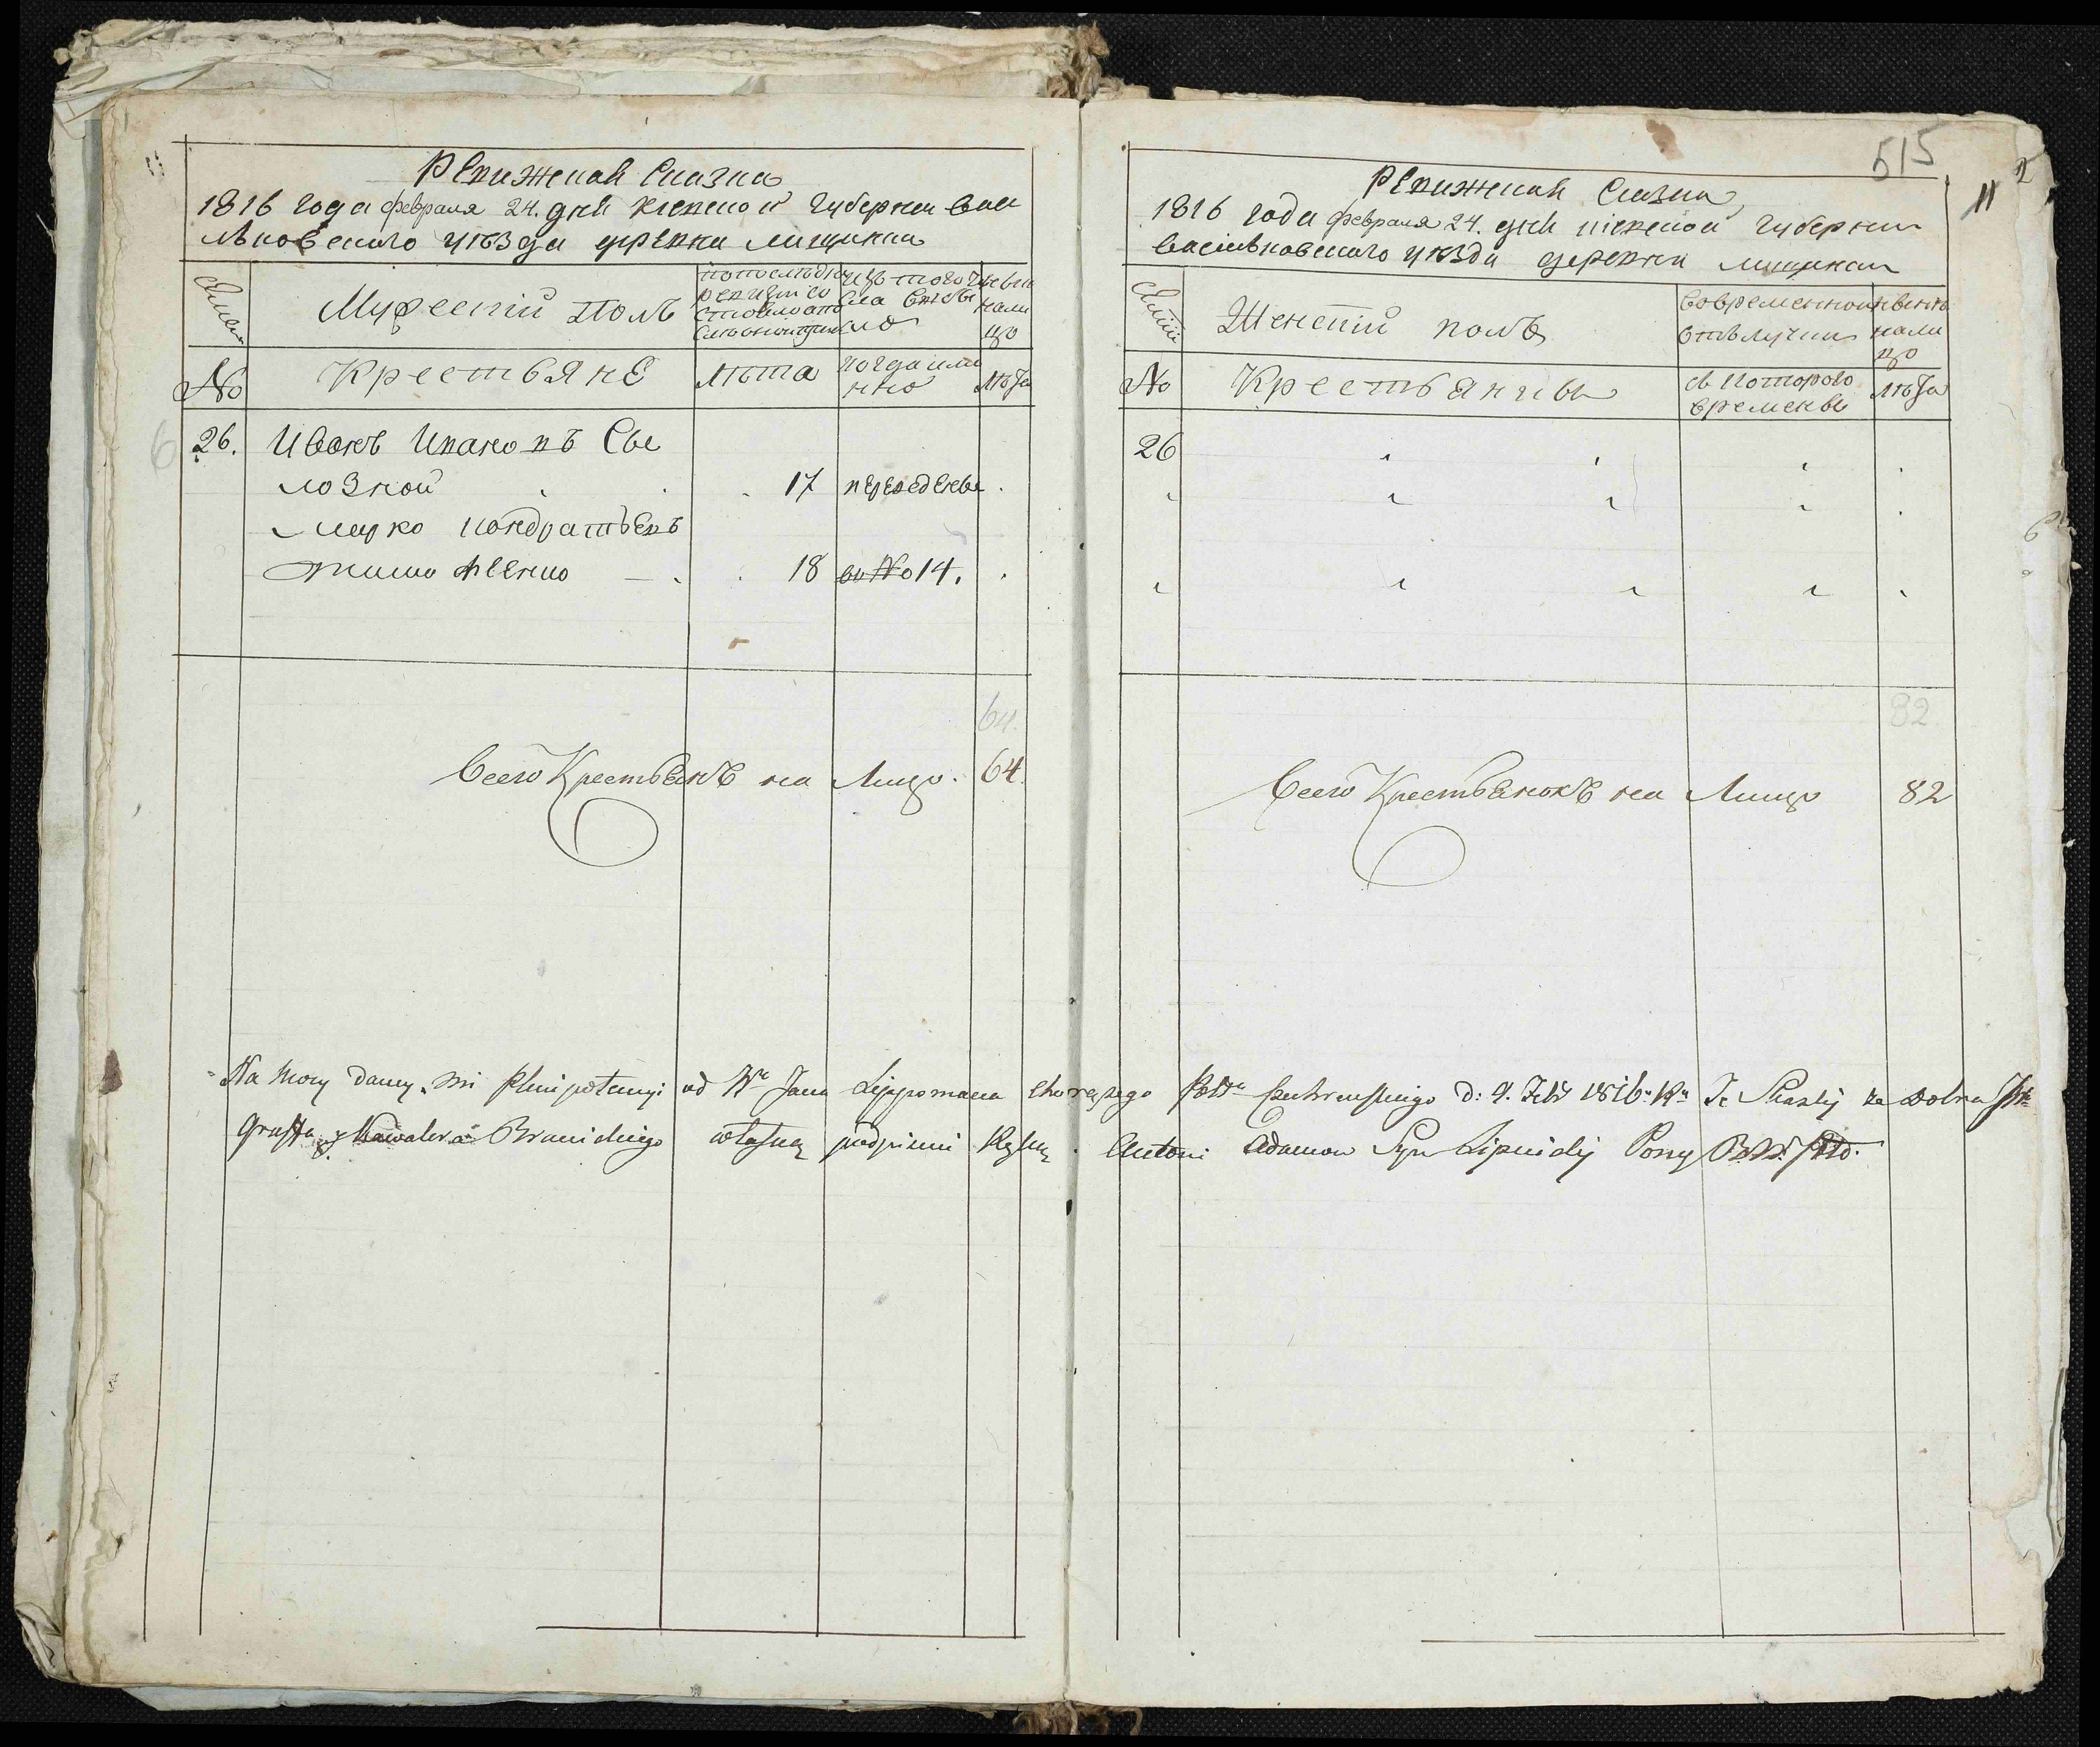 Ревижская Сказка
1816 года февраля 24. дня Киевской Губернии Васи
льковского уезда деревни Лищинки
Мужеский полъ
Семьи
по последней ревизии состояло и
изъ того числа выбыло
ныне на лицо
№
Крестьяне
Лета
когда именно
Лета
26. Иванъ Ивановъ Сы
лозной 17 переведены
Марко Кондратьевъ
Тимофеенко 18 въ № 14.
64.
Всего Крестьянъ на Лицо. 64.
515
11
Ревижская Сказка
1816 года февраля 24. дня Киевской Губернии
Васильковского уезда деревни Лищинки
Семьи
Женский полъ
во временной отлучке
ныне на лицо
№
Крестьянки
съ которого времени
Лета
26
82
Всего Крестьянокъ на Лицо 82
Na Mocy daney mi Plenipotencyi od Jana Lippomana Chorążego d: 4. 1816. Skarby za Dobra
Graffa y Kawalera Branickiego własną podpisuie Ręką. Antoni Adamow Syn Lipnicky